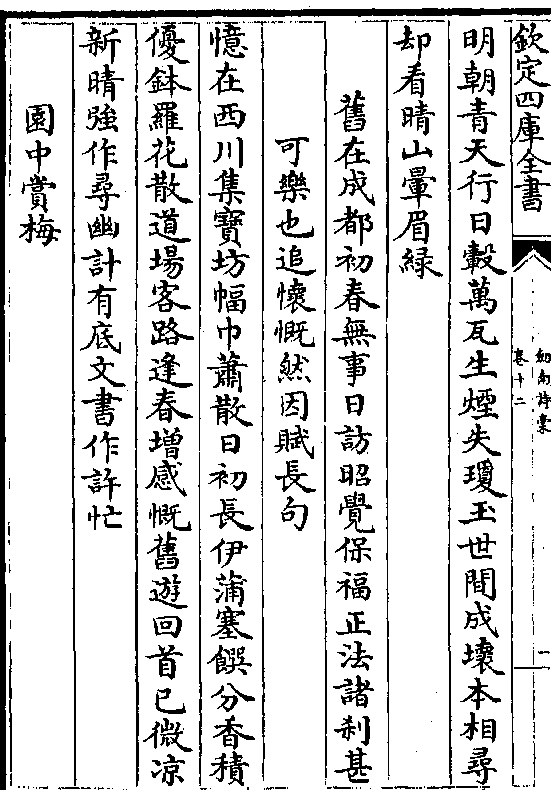 欽定四庫全書
劍南詩稾
卷十二
一
明朝青天行日轂萬瓦生煙失瓊玉世間成壞本相尋
却看晴山暈眉緑
舊在成都初春無事日訪昭覺保福正法諸刹甚
可樂也追懷慨然因賦長句
憶在西川集寶坊幅巾蕭散日初長伊蒲塞饌分香積
優鉢羅花散道場客路逢春增感慨舊遊回首已微凉
新晴強作尋幽計有底文書作許忙
園中賞梅